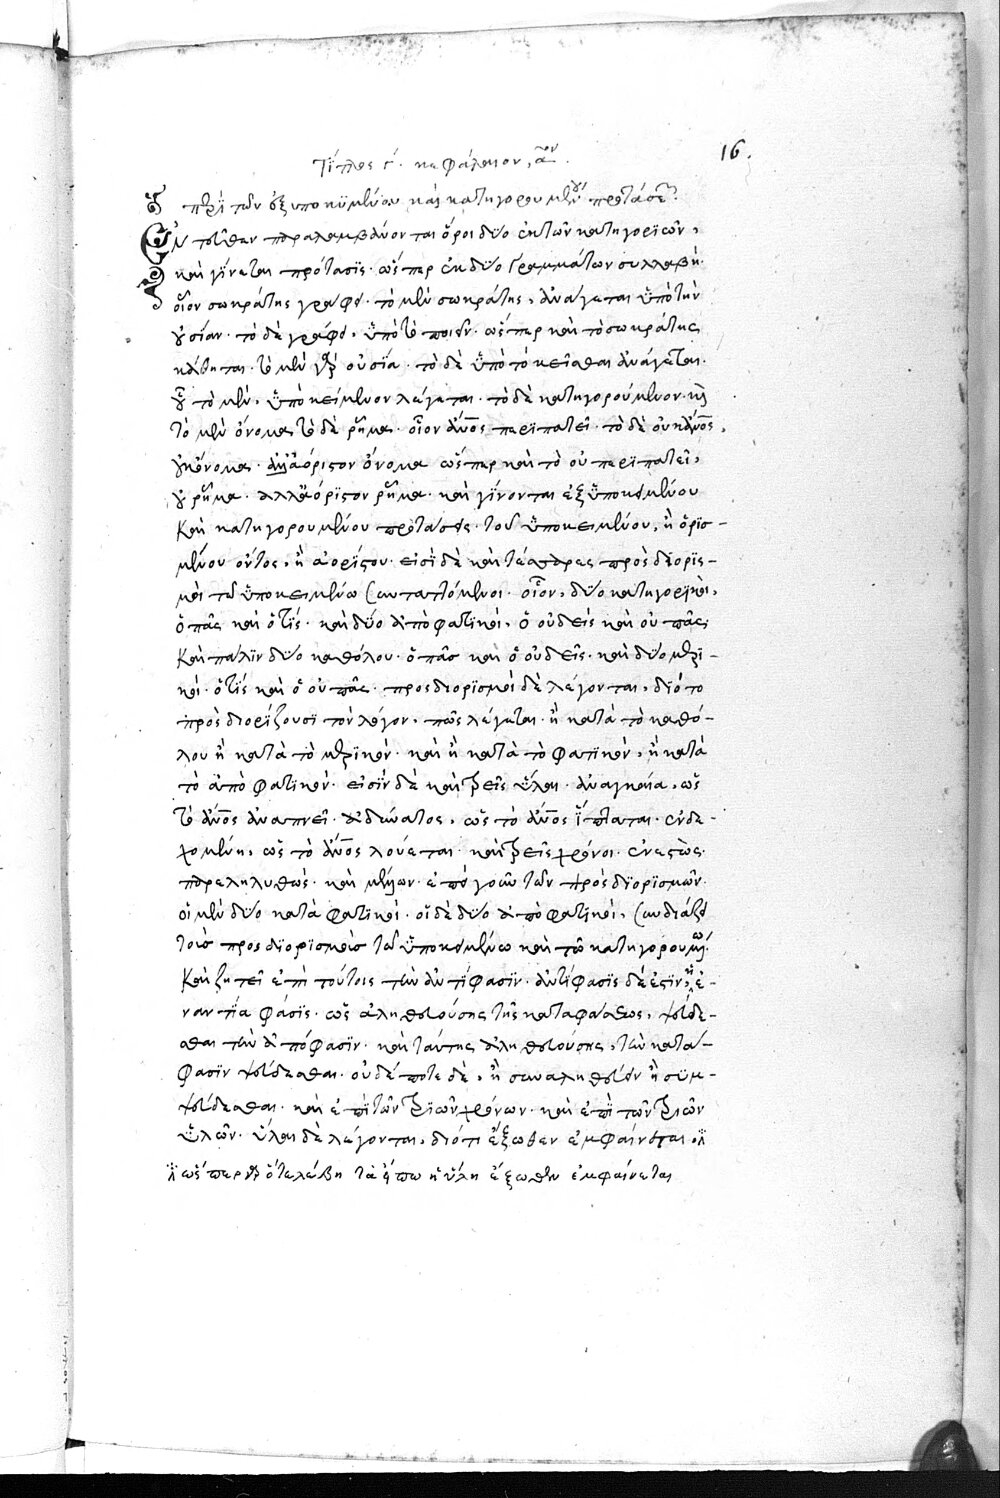 16.
Τίτλος γ΄. κεφάλαιον, αον.
περὶ τῶν ἐξ ὑποκειμένου καὶ κατηγορουμένου προτάσεων
Ἐντεῦθεν παραλαμβάνονται ὅροι δύο ἐκ τῶν κατηγοριῶν,
καὶ γίνεται πρότασις· ὥσπερ ἐκ δύο γραμμάτων συλλαβή·
οἷον σωκράτης γράφει· τὸ μὲν σωκράτης, ἀνάγεται ὑπὸ τὴν
οὐσίαν· τὸ δὲ γράφει, ὑπὸ τὸ ποιεῖν· ὥσπερ καὶ τὸ σωκράτης
κάθηται· τὸ μὲν γὰρ οὐσία· τὸ δὲ ὑπὸ τὸ κεῖσθαι ἀνάγεται·
οὗ τὸ μὲν, ὑποκείμενον λέγεται· τὸ δὲ κατηγορούμενον· καὶ
τὸ μὲν ὄνομα, τὸ δὲ ρῆμα· οἷον ἄνος περιπατεῖ· τὸ δὲ οὐκ ἄνος,
οὐκ ὄνομα· ἀλλ' ἀόριστον ὄνομα ὥσπερ καὶ τὸ οὐ περιπατεῖ,
οὐ ρῆμα· ἀλλὰ ἀόριστον ρῆμα· καὶ γίνονται ἐξ ὑποκειμένου
καὶ κατηγορουμένου προτάσεις· τοῦ ὑποκειμένου, ἢ ὁρισ-
μένου ὄντος, ἢ ἀορίστου· εἰσὶ δὲ καὶ τέσσαρες προσδιορισ-
μοὶ τῶ ὑποκειμένω συνταττόμενοι· οἷον, δύο κατηγορικοὶ,
ὁ πᾶς καὶ ὁ τὶς· καὶ δύο ἀποφατικοὶ, ὁ οὐδεὶς καὶ οὐ πᾶς·
Καὶ πάλιν δύο καθόλου· ὁ πᾶσ καὶ ὁ οὐδείς· καὶ δύο μερι-
κοὶ· ὁ τὶς καὶ ὁ οὐ πᾶς· προσδιορισμοὶ δὲ λέγονται, διότι
προσδιορίζουσι τὸν λόγον, πῶς λέγεται· ἢ κατὰ τὸ καθό-
λου ἢ κατὰ τὸ μερικόν· καὶ ἢ κατὰ τὸ φατικὸν, ἢ κατὰ
τὸ ἀποφατικόν· εἰσὶν δὲ καὶ τρεῖς ὗλαι· ἀναγκαία, ὡς
τὸ ἄνος ἀναπνεῖ· ἀδύνατος, ὡς τὸ ἄνος ἵπταται· ἐνδε-
χομένη, ὡς τὸ ἄνος λούεται· καὶ τρεῖς χρόνοι· ἐνεστὼς·
παρεληλυθὼς· καὶ μέλλων·
οἱ μὲν δύο καταφατικοὶ· οἱ δὲ δύο ἀποφατικοὶ,
τοῖσ προσδιορισμοῖσ τῶ ὑποκειμένω καὶ τῶ κατηγορουμένῳ·
Καὶ ζητεῖ ἐπὶ τούτοις τὴν ἀντίφασιν· ἀντίφασις δέ ἐστιν, ἡ ἐ-
ναντία φάσις· ὡς ἀληθευούσης τῆς καταφάσεως, ψεύδε-
σθαι τὴν ἀπόφασιν· καὶ ταύτης ἀληθευούσης, τὴν κατά-
φασιν ψεύδεσθαι· οὐδέποτε δὲ, ἢ συναληθεύειν ἢ συμ-
ψεύδεσθαι· καὶ ἐπὶ τῶν τριῶν χρόνων· καὶ ἐπὶ τῶν τριῶν
ὑλῶν· ὗλαι δὲ λέγονται, διότι ἔξωθεν ἐμφαίνεται
ὥσπερ ἔξωθεν ἐμφαίνεται